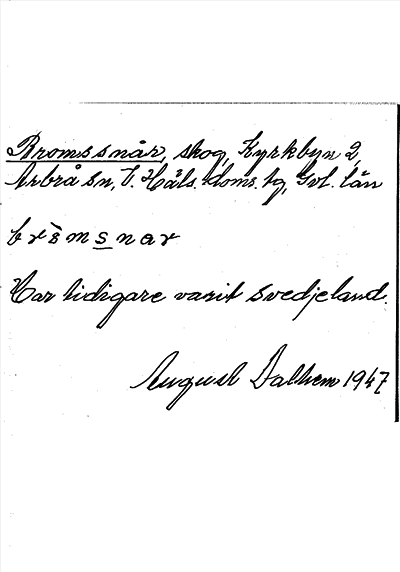 Bromssnår, skog, Kyrkbyn 2,
Arbrå sn, V. Häls. doms. tg, Gvl. län
brèmsnar
Har tidigare varit svedjeland.
August Dalhem 1947